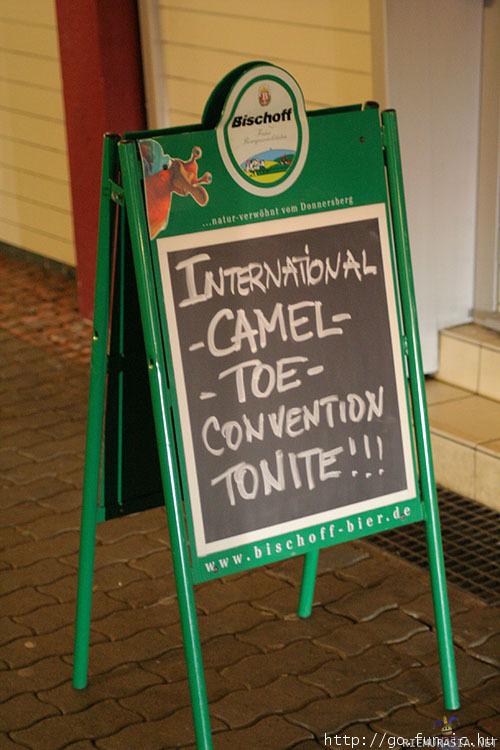 Bischoff
...natur-verwöhnt vom Donnersberg
INTERNATIONAL
-CAMEL-
-TOE-
CONVENTION
TONITE!!!
www.bischoff-bier.de
http://go.funsic.hu